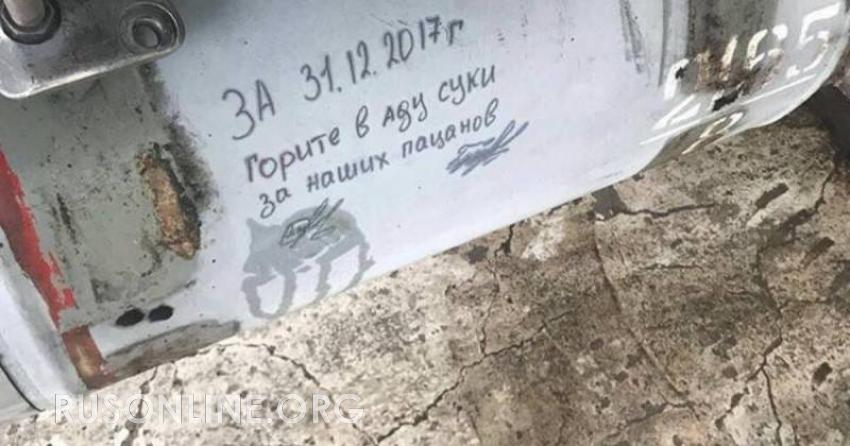 ЗА 31.12.2017г
горите в аду суки
за наших пацанов
RUSONLINE.ORG